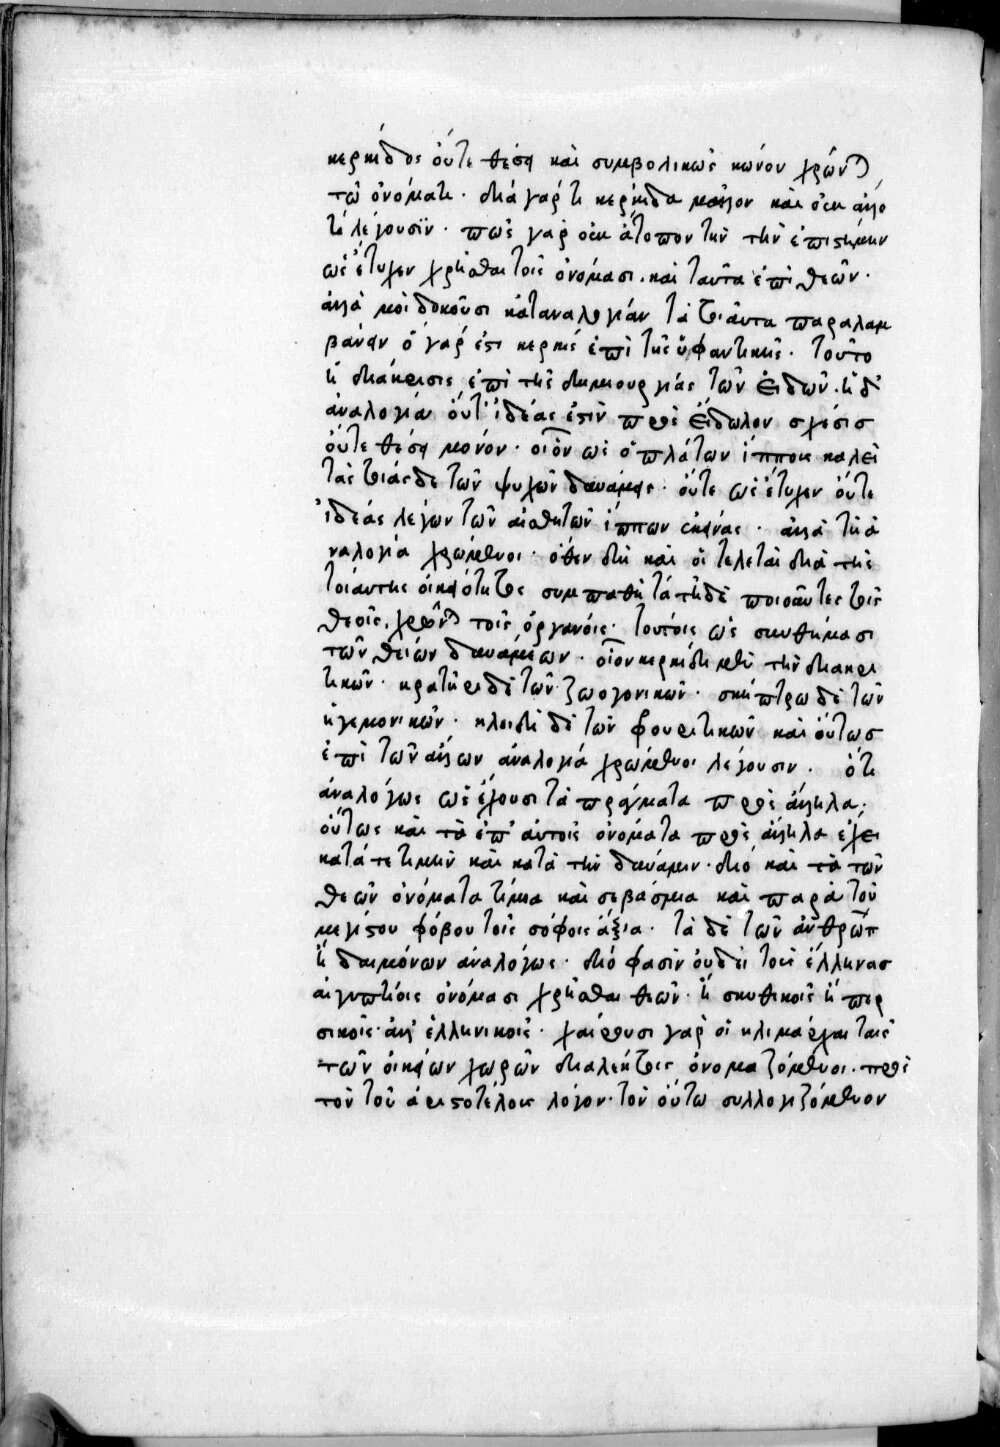 κερκίδος οὔτε θέσει καὶ συμβολικῶς κώνον χρῶν)
τῶ ὀνόματι · διὰ γάρ τι κερκίδα μᾶλλον καὶ οὐκ ἀλλό
τι λέγουσϊν · πῶς γὰρ οὐκ ἄτοπον τὴν τὴν ἐπιστήμην
ὡς ἔτυχεν χρῆσθαι τοῖς ὀνόμασι · καὶ ταῦτα ἐπὶ θεῶν ·
ἀλλά μοι δοκοῦσι καταναλογίαν τὰ τοιαῦτα παραλαμ
βάνειν ὃ γάρ ἐστι κερκὶς ἐπὶ τῆς ὑφαντικῆς · τοῦτο
ἡ διάκρισις ἐπὶ τῆς δημιουργίας τῶν εἰδῶν · ἡ δ'
ἀναλογία οὔτ' ἰδέας ἐστὶν πρὸς εἴδωλον σχέσις
οὔτε θέσει μόνον · οἷον ὡς ὁ πλάτων ἵππους καλεῖ
τὰς τοιάσδε τῶν ψυχῶν δυνάμεις · οὔτε ὡς ἔτυχεν οὔτε
ἰδέας λέγων τῶν αἰσθητῶν ἵππων ἐκείνας · ἀλλὰ τῆ ἀ
ναλογία χρώμενοι · ὅθεν δὴ καὶ οἱ τελεταὶ διὰ τῆς
τοιαύτης οἰκειότητος συμπαθῆ τὰ τῆδε ποιοῦντες τοῖς
θεοῖς, χρῶν) τοῖς ὀργάνοις · τούτοις ὡς συνθήμασι
τῶν θείων δυνάμεων · οἷον κερκίδι μὲν τὴν διακρι
τικῶν · κρατῆρι δὲ τῶν ζωογονικῶν · σκήπτρω δὲ τῶν
ἡγεμονικῶν · κλειδὶ δὲ τῶν φρουρητικῶν καὶ οὕτως
ἐπὶ τῶν ἄλλων ἀναλογία χρώμενοι λέγουσιν · ὅτι
ἀναλόγως ὡς ἔχουσι τὰ πράγματα πρὸς ἄλληλα ·
οὕτως καὶ τὰ ἐπ' αὐτοῖς ὀνόματα πρὸς ἄλληλα ἔχει
κατά τε τιμὴν καὶ κατὰ τὴν δύναμιν · διὸ καὶ τὰ τῶν
θεῶν ὀνόματα τίμια καὶ σεβάσμια καὶ παρὰ τοῦ
μεγίστου φόβου τοῖς σόφοις ἄξια · τὰ δὲ τῶν ἀνθρώπ
ἢ δαιμόνων ἀναλόγως · διό φασὶν οὐδεῖ τοὺς ἕλληνας
αἰγυπτίοις ὀνόμασι χρῆσθαι θεῶν · ἢ σκυθικοῖς ἢ περ
σικοῖς · ἀλλ' ἑλληνικοῖς · χαίρουσι γὰρ οἱ κλιμάρχαι ταῖς
τῶν οἰκείων χωρῶν διαλέκτοις ὀνομαζόμενοι · πρὸς
τὸν τοῦ ἀριστοτέλους λόγον · τὸν οὕτω συλλογιζόμενον